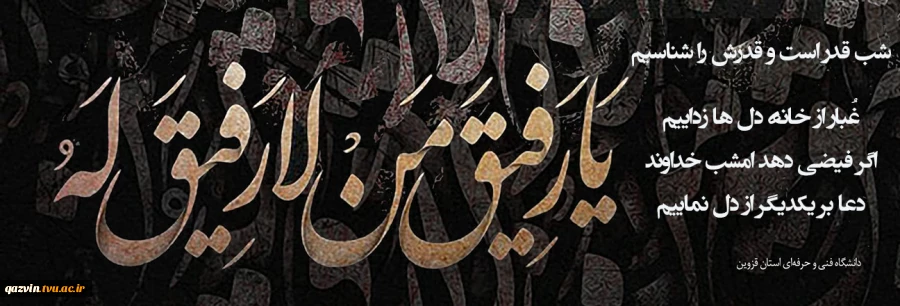 شب قدر است و قدرش را شناسیم
غُبار از خانه دل ها زداییم
اگر فیضی دهد امشب خداوند
دعا بر یکدیگر از دل نماییم
دانشگاه فنی و حرفه‌ای استان قزوین
یَا رَفِیقَ مَنْ لَا رَفِیقَ لَهُ
qazvin.tvu.ac.ir